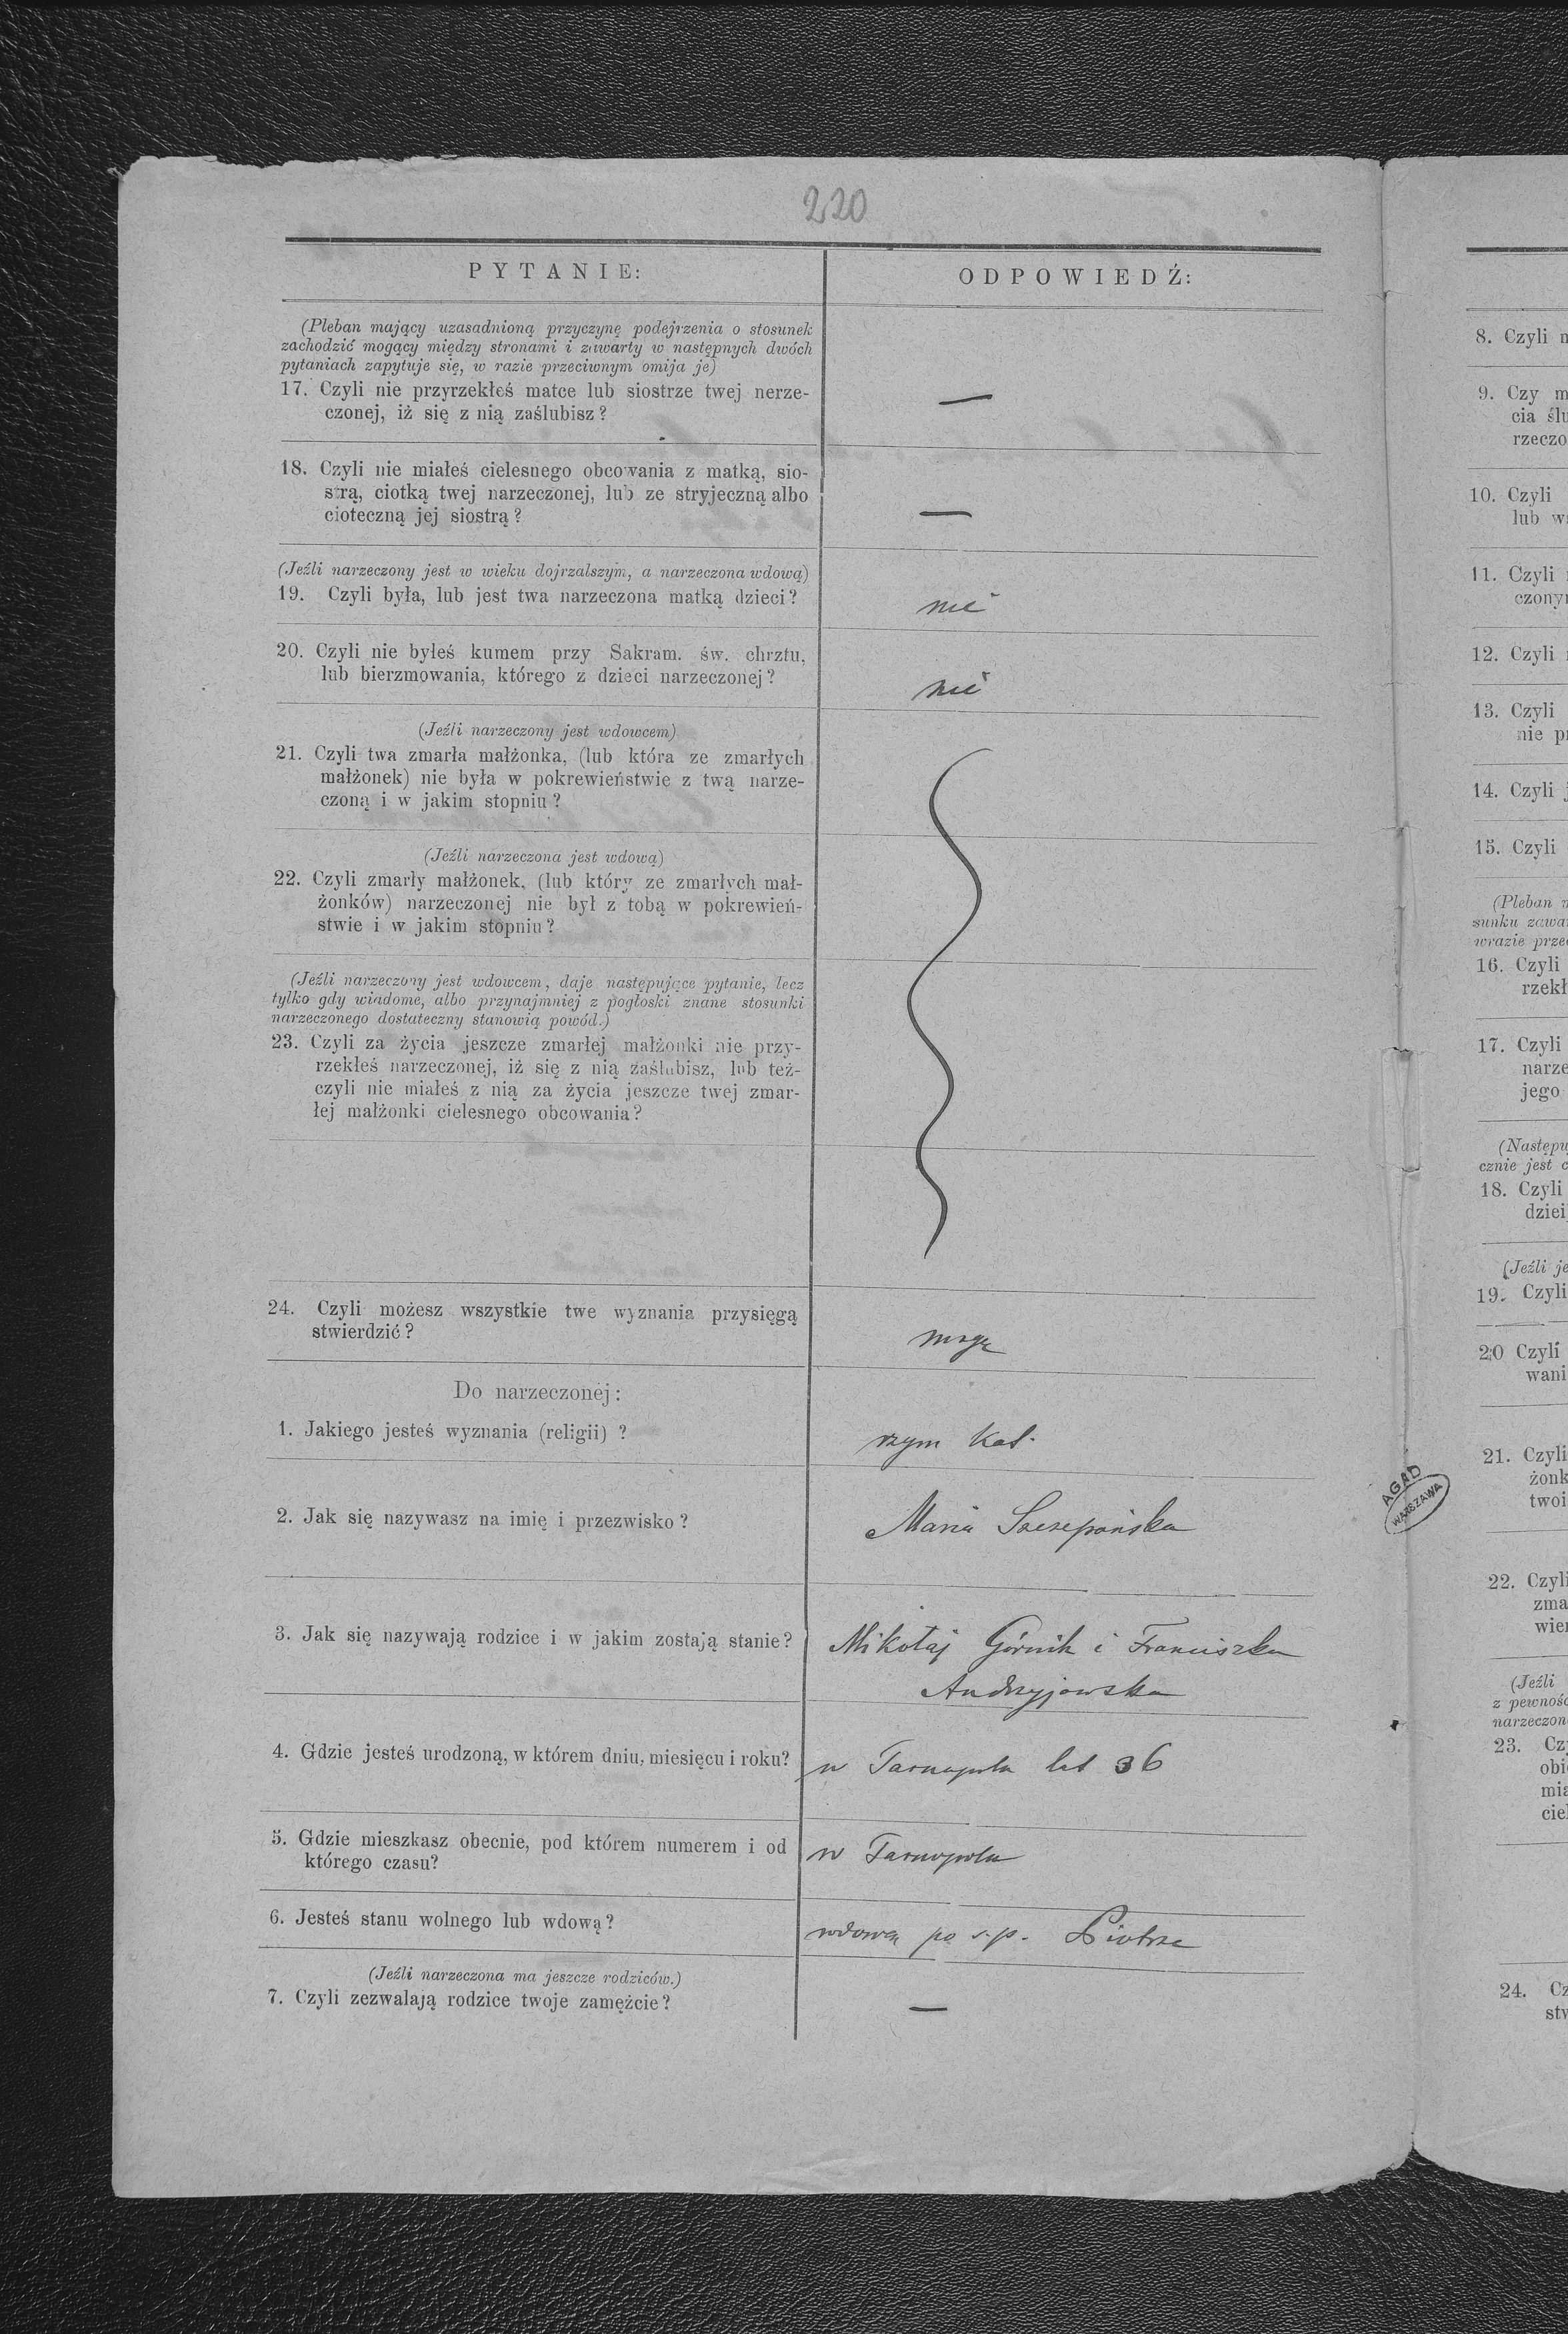 220
PYTANIE:
ODPOWIEDŹ:
(Pleban mający uzasadnioną przyczynę podejrzenia o stosunek
zachodzić mogący między stronami i zawarty w następnych dwóch
pytaniach zapytuje się, w razie przeciwnym omija je)
17. Czyli nie przyrzekłeś matce lub siostrze twej nerze-
czonej, iż się z nią zaślubisz?
—
18. Czyli nie miałeś cielesnego obcowania z matką, sio-
strą, ciotką twej narzeczonej, lub ze stryjeczną albo
cioteczną jej siostrą?
—
(Jeźli narzeczony jest w wieku dojrzalszym, a narzeczona wdową)
19. Czyli była, lub jest twa narzeczona matką dzieci?
nie
20. Czyli nie byłeś kumem przy Sakram. św. chrztu,
lub bierzmowania, którego z dzieci narzeczonej?
nie
(Jeźli narzeczony jest wdowcem)
21. Czyli twa zmarła małżonka, (lub która ze zmarłych
małżonek) nie była w pokrewieństwie z twą narze-
czoną i w jakim stopniu?
(Jeźli narzeczona jest wdową)
22. Czyli zmarły małżonek, (lub który ze zmarłych mał-
żonków) narzeczonej nie był z tobą w pokrewień-
stwie i w jakim stopniu?
(Jeźli narzeczony jest wdowcem, daje następujące pytanie, lecz
tylko gdy wiadome, albo przynajmniej z pogłoski znane stosunki
narzeczonego dostateczny stanowią powód.)
23. Czyli za życia jeszcze zmarłej małżonki nie przy-
rzekłeś narzeczonej, iż się z nią zaślubisz, lub też
czyli nie miałeś z nią za życia jeszcze twej zmar-
łej małżonki cielesnego obcowania?
24. Czyli możesz wszystkie twe wyznania przysięgą
stwierdzić?
mogę
Do narzeczonej:
1. Jakiego jesteś wyznania (religii) ?
rzym kat.
2. Jak się nazywasz na imię i przezwisko?
Maria Szczepańska
3. Jak się nazywają rodzice i w jakim zostają stanie?
Mikołaj Górnik i Franciszka
Andrzyjowska
4. Gdzie jesteś urodzoną, w którem dniu, miesięcu i roku?
w Tarnopolu lat 36
5. Gdzie mieszkasz obecnie, pod którem numerem i od
którego czasu?
w Tarnopolu
6. Jesteś stanu wolnego lub wdową?
wdową po ś.p. Piotrze
(Jeźli narzeczona ma jeszcze rodziców.)
7. Czyli zezwalają rodzice twoje zamężcie?
—
8. Czyli
9. Czy
cia
rzeczo
10. Czyli
lub
11. Czyli
czony
12. Czyli
13. Czyli
nie
14. Czyli
15. Czyli
(Pleban
sunku
wrazie
16. Czyli
rzekł
17. Czyli
narze
jego
cznie jest
18. Czyli
dziei
(Jeźli
19. Czyli
20 Czyli
wani
AGAD
WARSZAWA
21. Czyli
żonk
twoi
22. Czyli
zma
wie
(Jeźli
narzeczon
23.
24.